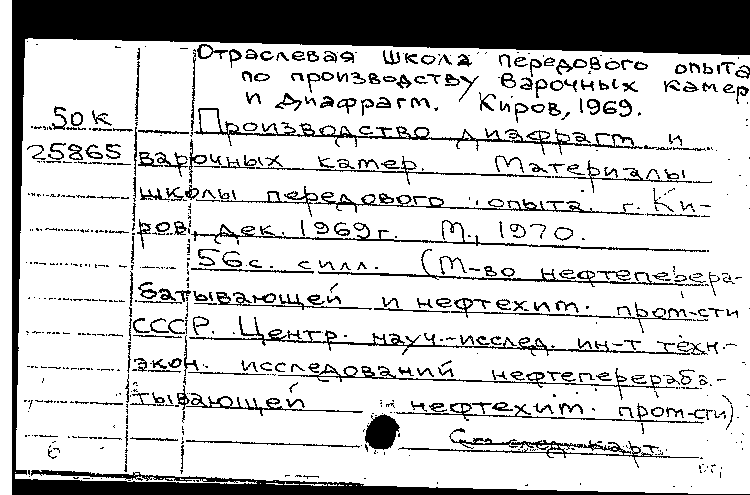 Отраслевая школа передового опыта
по производству варочных камер
и диафрагм. Киров, 1969.
50к
Производство диафрагм и
25865 варочных камер. Материалы
школы передового опыта. г. Ки-
ров, дек. 1969г. М., 1970.
56с. с илл. (М-во нефтеперера-
батывающей и нефтехим. пром-сти
СССР. Центр. науч.-исслед. ин-т техн.-
экон. исследований нефтеперераба-
тывающей и нефтехим. пром-сти)
См. след. карт.
6